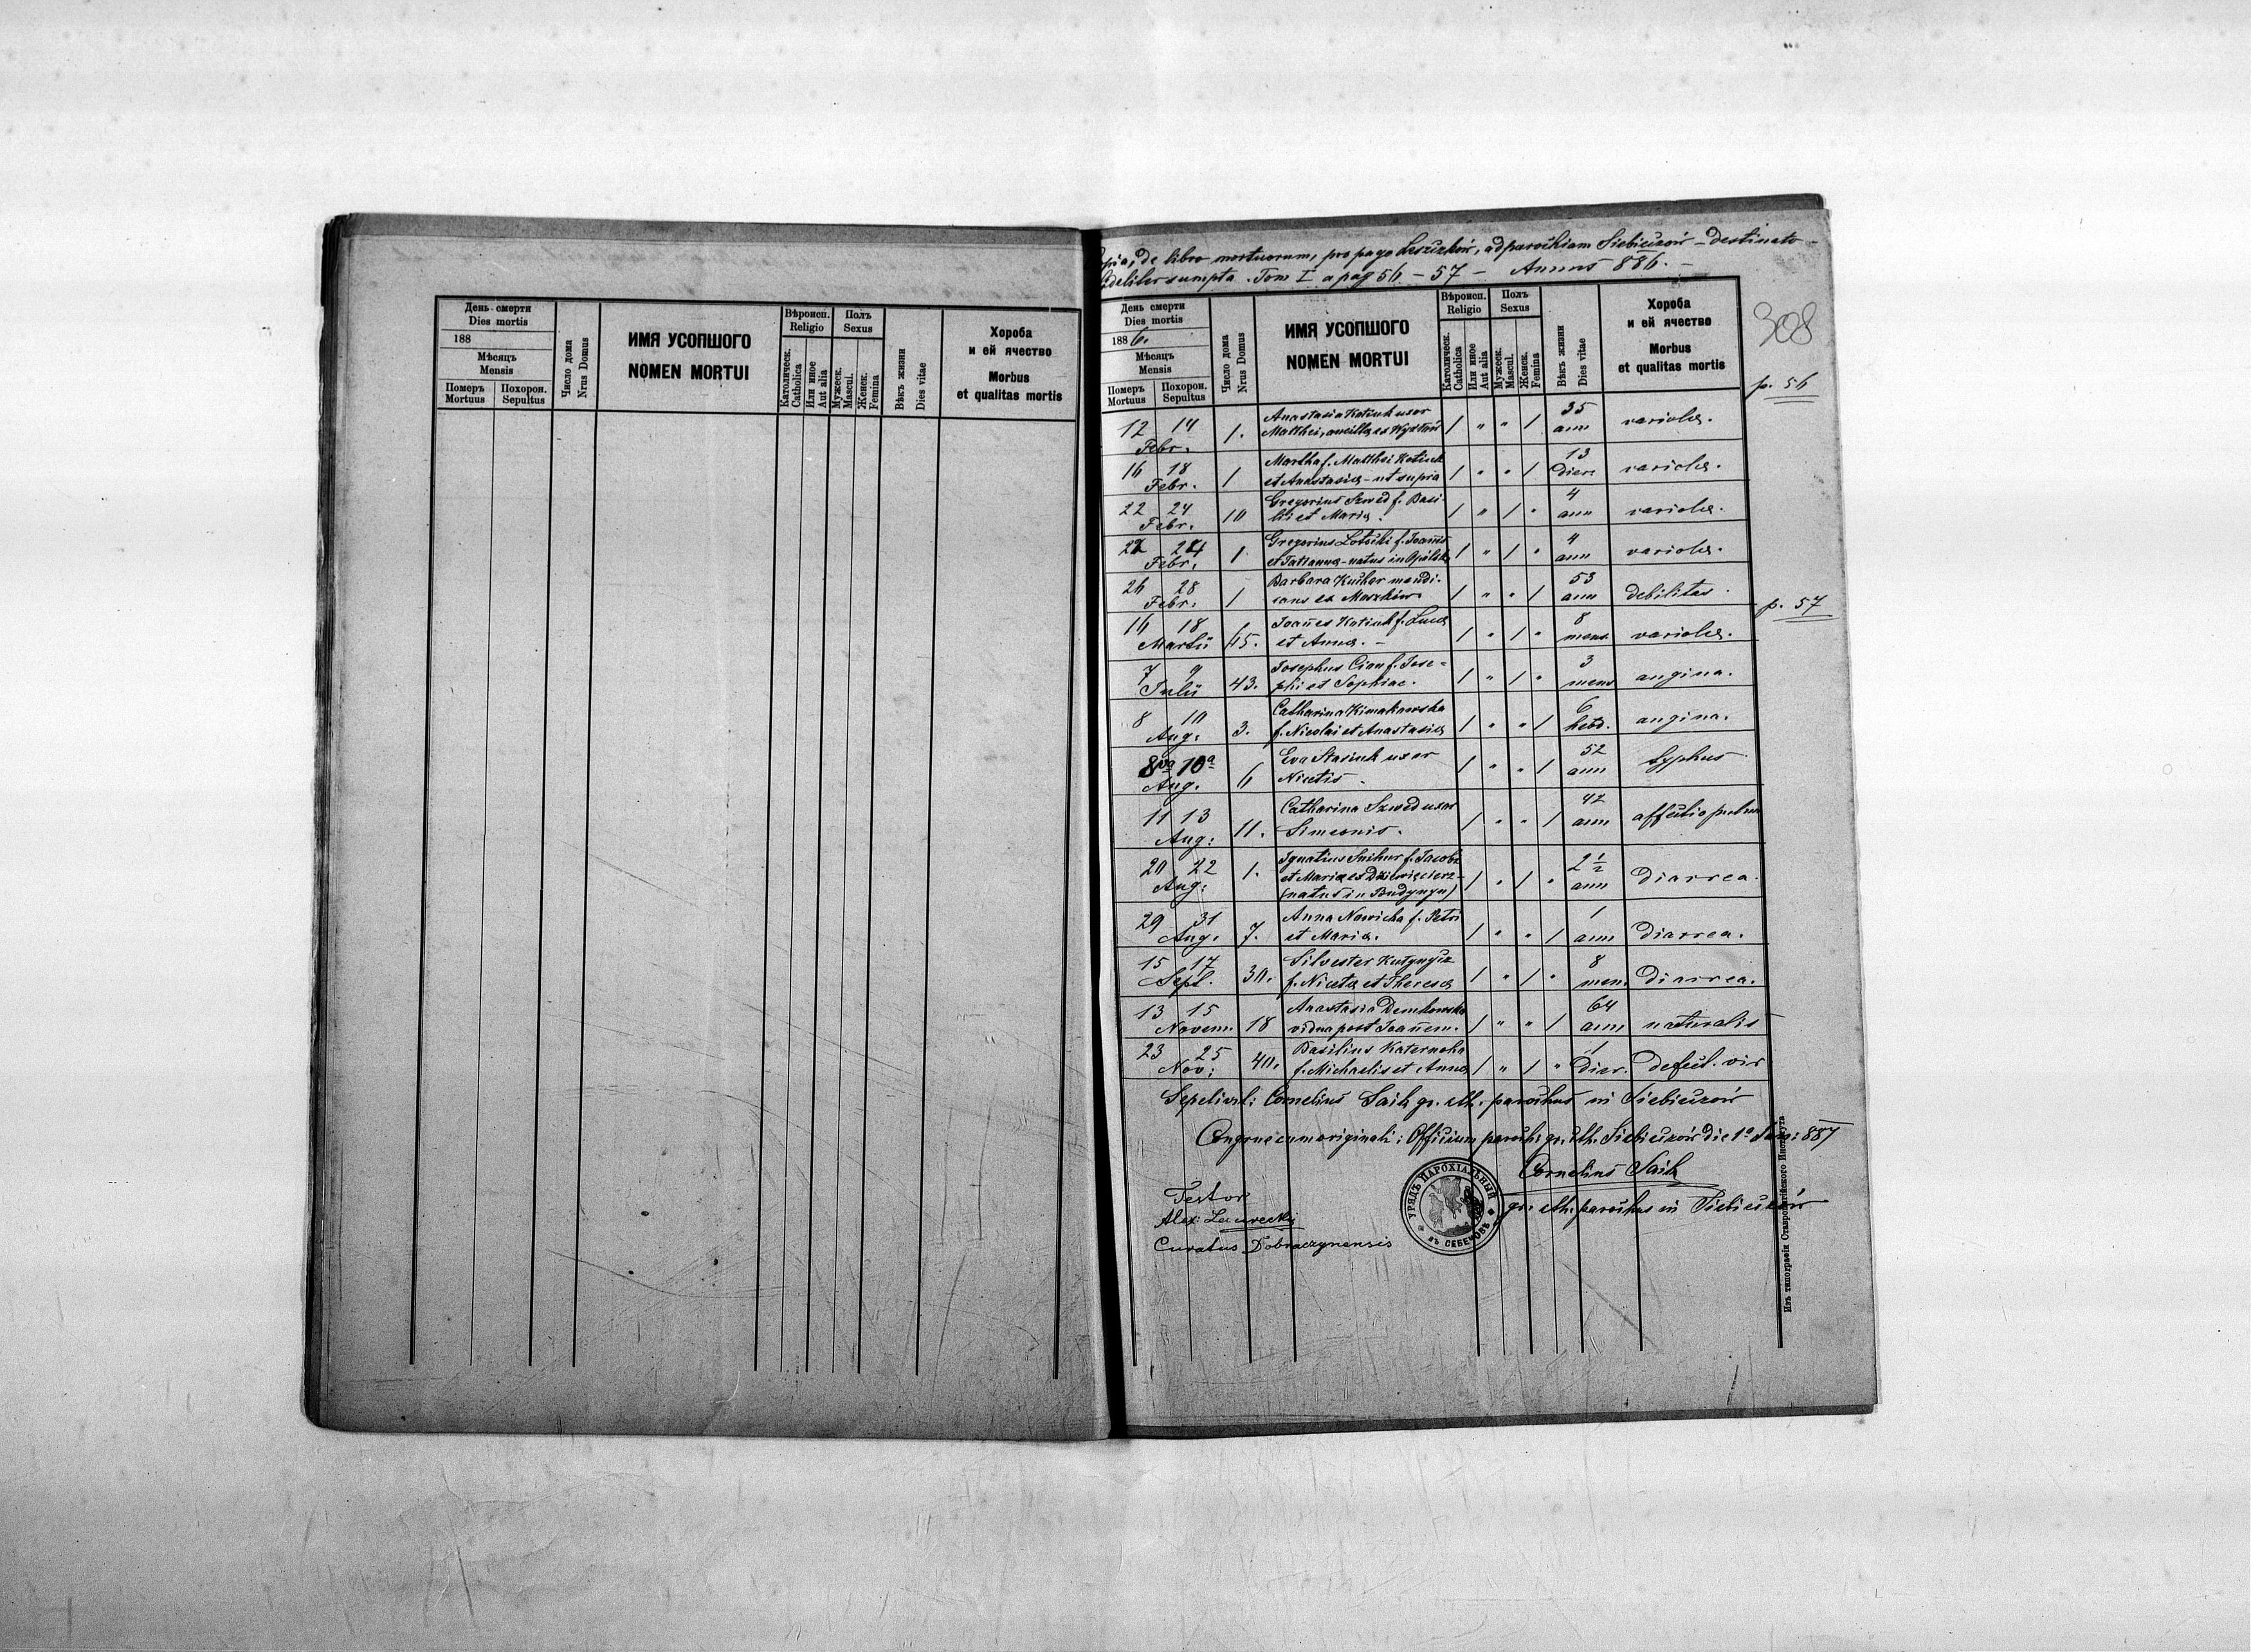 День смерти
Dies mortis
188
Мѣсяцъ
Mensis
Померъ
Mortuus
Похорон.
Sepultus
Число дома
Nrus Domus
ИМЯ УСОПШОГО
NOMEN MORTUI
Вѣроисп.
Religio
Католическ.
Catholica
Или иное
Aut alia
Полъ
Sexus
Мужеск.
Mascul.
Женск.
Femina
Вѣкъ жизни
Dies vitae
Хороба
и ей ячество
Morbus
et qualitas mortis
de libro mortuorum, pro pago Leszczków, ad parochiam Siebieczów - destinato -
sumpta. Tom I a pag 56 - 57 - Annus 886. -
308
День смерти
Dies mortis
1886.
Мѣсяцъ
Mensis
Померъ
Mortuus
Похорон.
Sepultus
Число дома
Nrus Domus
ИМЯ УСОПШОГО
NOMEN MORTUI
Вѣроисп.
Religio
Католическ.
Catholica
Или иное
Aut alia
Полъ
Sexus
Мужеск.
Mascul.
Женск.
Femina
Вѣкъ жизни
Dies vitae
Хороба
и ей ячество
Morbus
et qualitas mortis
p. 56
12 14 Febr. 1. Anastasia Kotiuk uxor
Matthei, ancilla ex 1 " " 1 35 ann variolae.
16 18 Febr. 1 Martha f. Matthei Kotiuk
et Anastasiae - ut supra 1 " " 1 13 dier. variolae.
22 24 Febr. 10 Gregorius Szwed f. Basi-
lii et Mariae. 1 " 1 " 4 ann variolae.
22 24 Febr. 1 Gregorius f. Joannis
et Tatianna - natus in 1 " 1 " 4 ann variolae.
26 28 Febr. 1 Barbara Kuchar mendi-
cans ex 1 " " 1 53 ann debilitas.
p. 57
16 18 Martii 45. Joannes Kotiuk f. Lucae
et Annae. - 1 " 1 " 8 mens. variolae.
7 9 Julii 43. Josephus Cian f. Jose-
phi et Sophiae. 1 " 1 " 3 mens angina.
8 10 Aug. 3. Catharina Kimakowska
f. Nicolai et Anastasiae 1 " " 1 6 hebd. angina.
8va 10a Aug. 6 Eva Stasiuk uxor
Nicetis. 1 " " 1 52 ann typhus
11 13 Aug: 11. Catharina Szwed uxor
Simeonis. 1 " " 1 42 ann affectio pulm
20 22 Aug: 1. Ignatius Snihur f. Jacobi
et Mariae ex
(natus in Budynyn) 1 " 1 " 2 1/2 ann diarrea.
29 31 Aug. 7. Anna Nowicka f. Petri
et Mariae. 1 " " 1 1 ann diarrea.
15 17 Sept. 30. Silvester
f. Nicetae et Theresae 1 " 1 " 8 men. diarrea.
13 15 Novem. 18 Anastasia Demkowska
vidua post Joannem. 1 " " 1 64 ann naturalis
23 25 Nov: 40. Basilius Katernoha
f. Michaelis et Annae 1 " 1 " 1 dier. defect. vir
Sepelivit: Cornelius Saik gr. cth. parochus in Siebieczów
Congrue cum originali: Officium paroch: gr. cth. Siebieczów die 1a Jan: 887
Cornelius Saik
gr. cth. parochus in Siebieczów
Testor
Alex: Laurecki
Curatus Dobraczynensis
УРЯДЪ ПАРОХІАЛЬНЫЙ
Изъ типографіи Ставропигійского Института